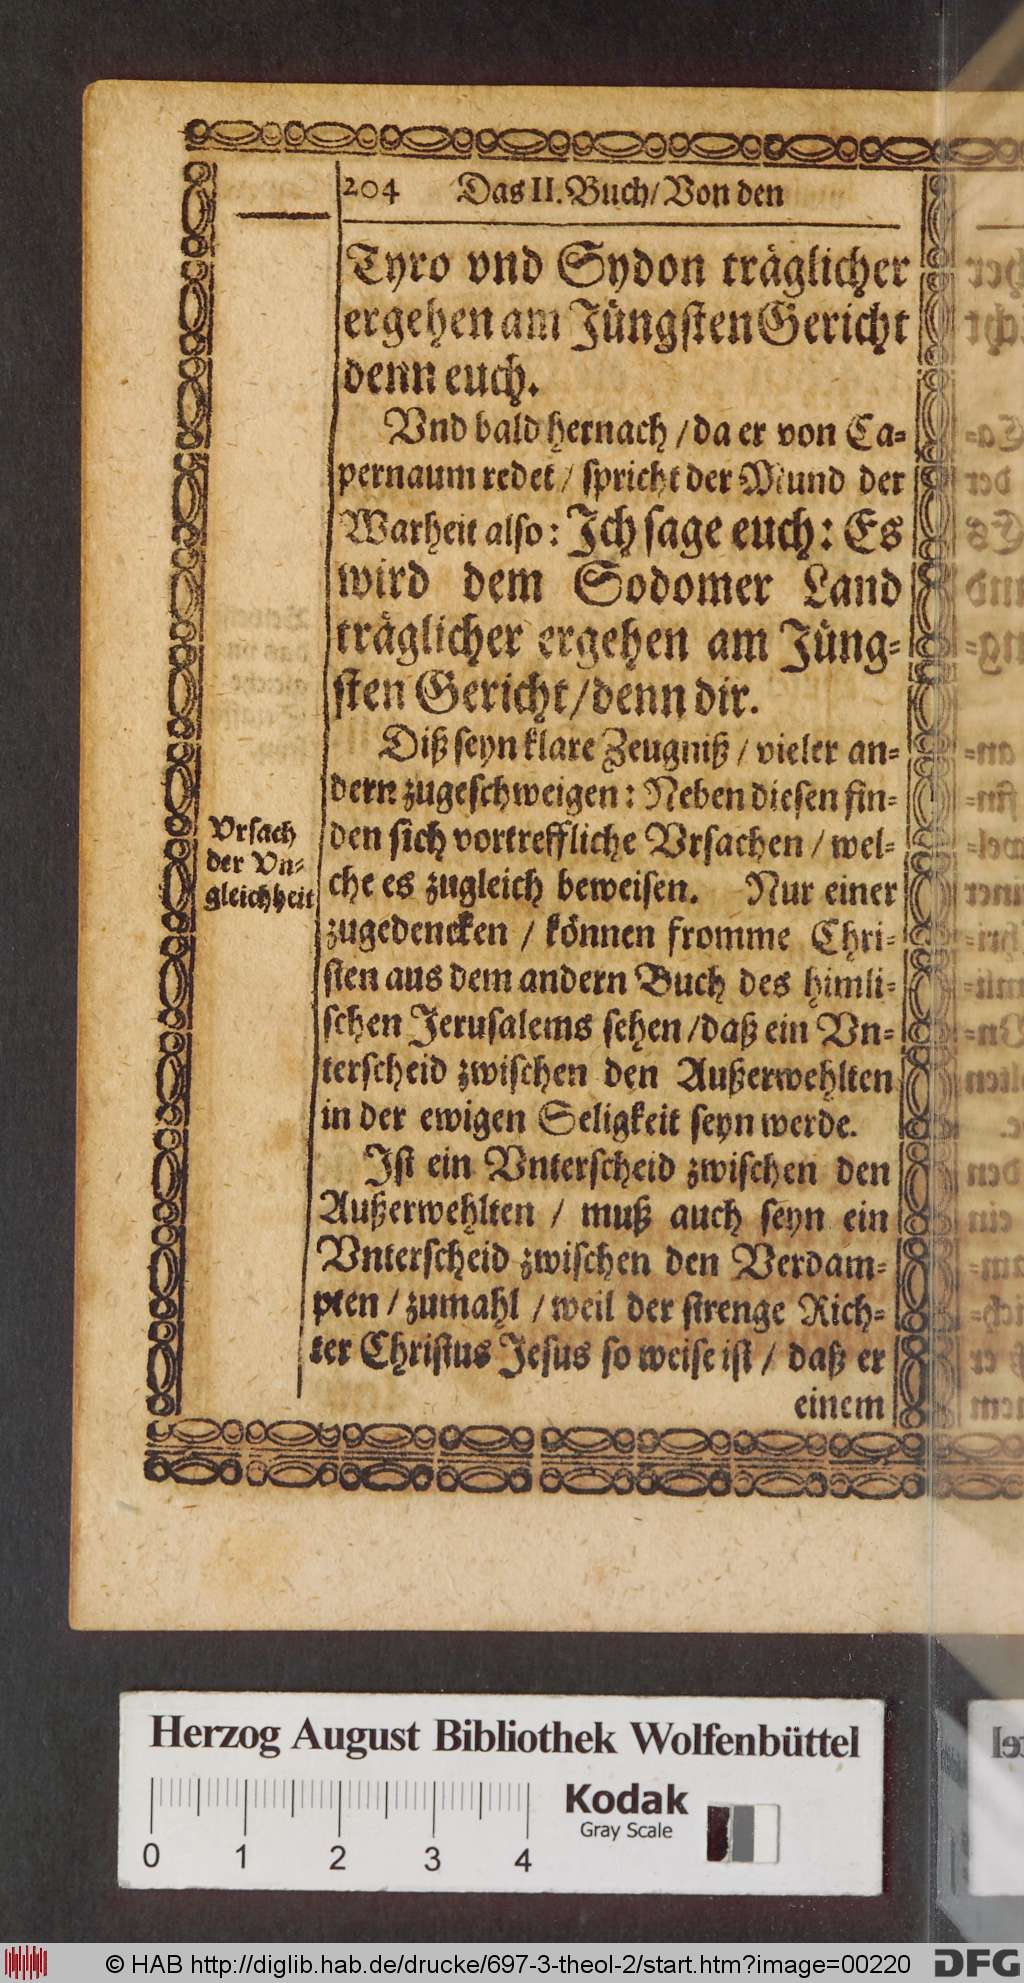 204 Das II. Buch/ Von den
Tyro vnd Sydon träglicher
ergehen am Jüngsten Gericht
denn euch.
Vnd bald hernach / da er von Ca-
pernaum redet / spricht der Mund der
Warheit also: Ich sage euch: Es
wird dem Sodomer Land
träglicher ergehen am Jüng-
sten Gericht / denn dir.
Diß seyn klare Zeugniß / vieler an-
dern zugeschweigen: Neben diesen fin-
Vrsach
der Vn-
gleichheit
den sich vortreffliche Vrsachen / wel-
che es zugleich beweisen. Nur einer
zugedencken / können fromme Chri-
sten aus dem andern Buch des himli-
schen Jerusalems sehen / daß ein Vn-
terscheid zwischen den Außerwehlten
in der ewigen Seligkeit seyn werde.
Ist ein Vnterscheid zwischen den
Außerwehlten / muß auch seyn ein
Vnterscheid zwischen den Verdam-
pten / zumahl / weil der strenge Rich-
ter Christus Jesus so weise ist / daß er
einem
Herzog August Bibliothek Wolfenbüttel
Kodak
Gray Scale
0 1 2 3 4
© HAB http://diglib.hab.de/drucke/697-3-theol-2/start.htm?image=00220
DFG